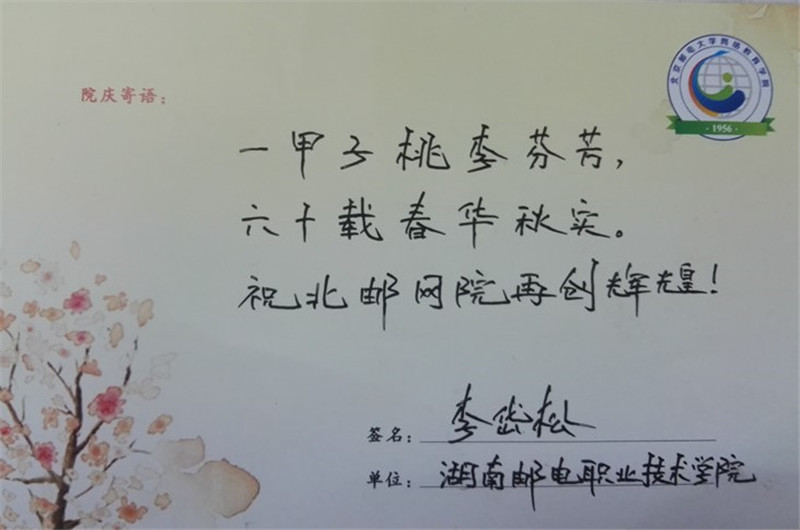 院庆寄语：
北京邮电大学网络教育学院
·1956·
一甲子桃李芬芳，
六十载春华秋实。
祝北邮网院再创辉煌！
签名：李岱松
单位：湖南邮电职业技术学院